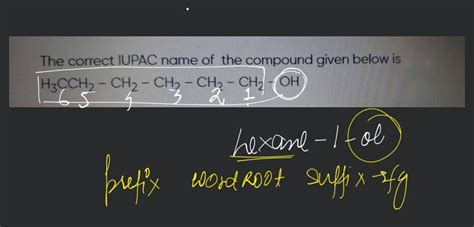 The correct IUPAC name of the compound given below is
H₃CCH₂ – CH₂ – CH₂ – CH₂ – CH₂ – OH
6 5 4 3 2 1
hexane – 1 – ol
prefix word Root suffix → fg